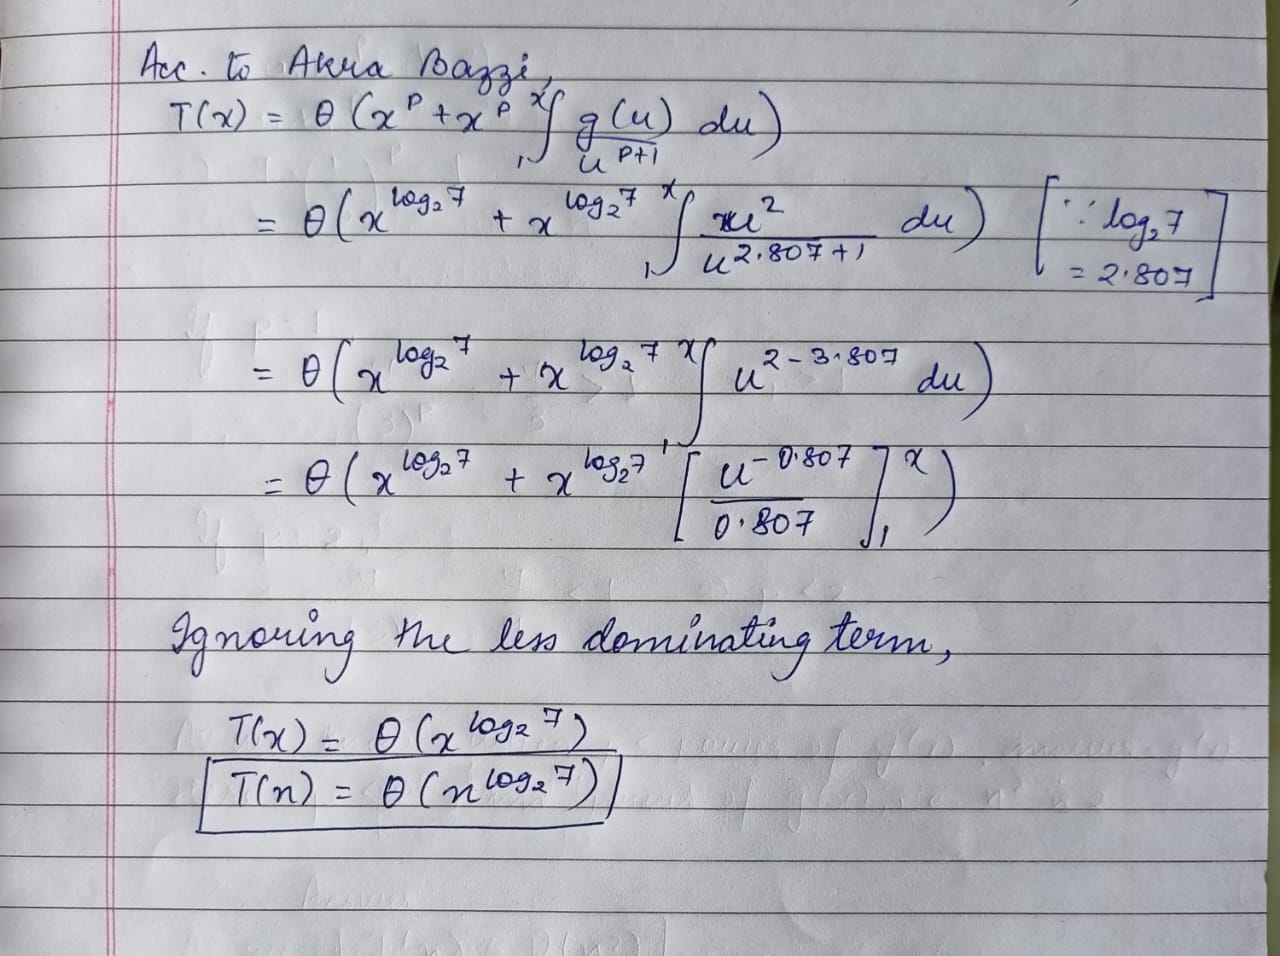 Acc. to Akra Bazzi,
T(x) = θ(x^p + x^p ₁∫^x g(u)/u^(p+1) du)
= θ(x^(log₂7) + x^(log₂7) ₁∫^x u²/u^(2.807+1) du) [∵ log₂7 = 2.807]
= θ(x^(log₂7) + x^(log₂7) ₁∫^x u^(2-3.807) du)
= θ(x^(log₂7) + x^(log₂7) [u^(-0.807)/0.807]₁^x)
Ignoring the less dominating term,
T(x) = θ(x^(log₂7))
T(n) = θ(n^(log₂7))